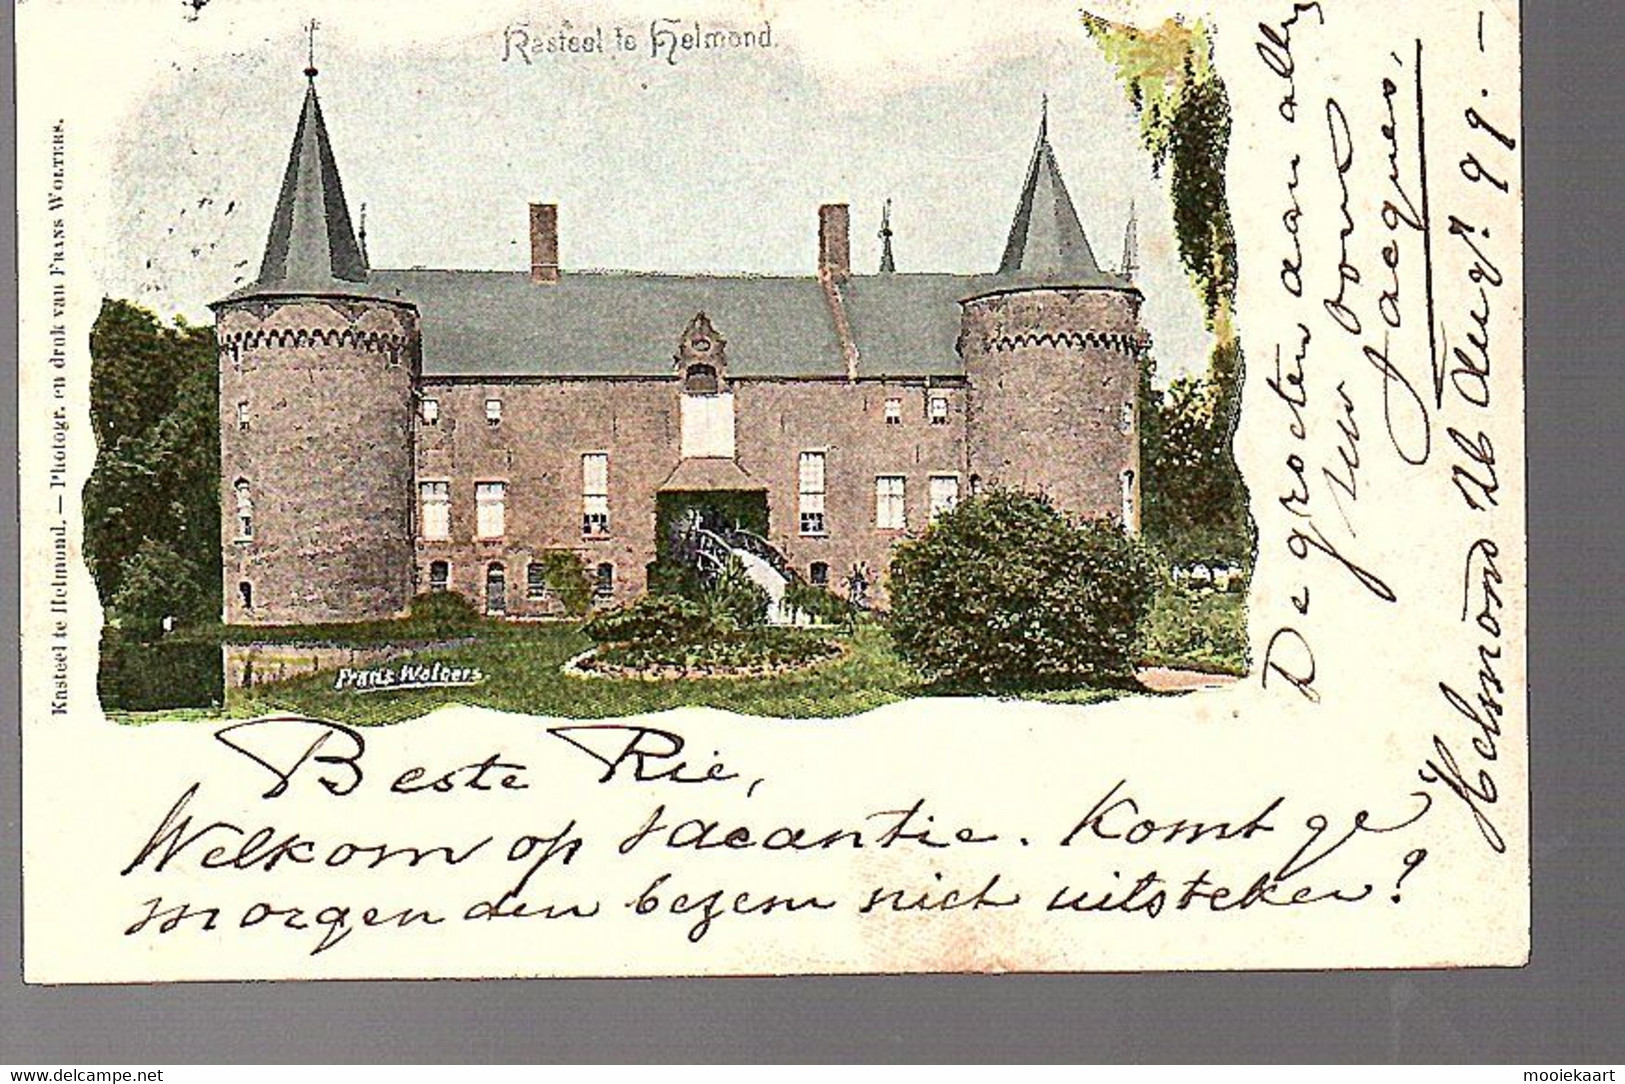 Kasteel te Helmond.
Kasteel te Helmond. — Photogr. en druk van FRANS WOLTERS.
Frans Wolters
Beste Rie,
Welkom op vacantie. Komt ge
morgen den bezem niet uitsteken?
De groeten aan allen
uw oom
Jacques.
Helmond 26 Aug. 99. —
delcampe.net
mooiekaart